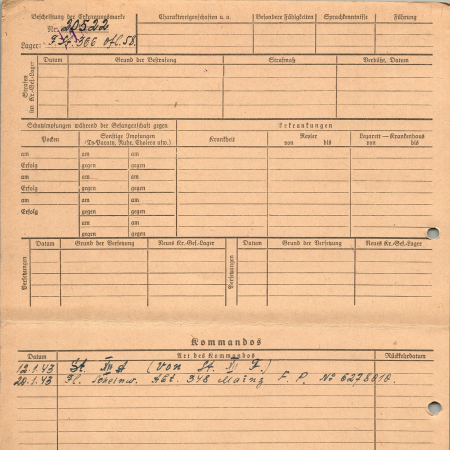 Beschriftung der Erkennungsmarke
Nr. 20522
Lager: 366
Charaktereigenschaften u. a.
Besondere Fähigkeiten
Sprachkenntnisse
Führung
Strafen im Kr.-Gef.-Lager
Datum
Grund der Bestrafung
Strafmaß
Verbüßt, Datum
Schutzimpfungen während der Gefangenschaft gegen
Erkrankungen
Pocken
Sonstige Impfungen
(Ty-Paratn, Ruhr, Cholera usw.)
Krankheit
Revier
von bis
Lazarett — Krankenhaus
von bis
am am am
Erfolg gegen gegen
am am am
Erfolg gegen gegen
am am am
Erfolg gegen gegen
am am
gegen gegen
Versetzungen
Datum
Grund der Versetzung
Neues Kr.-Gef.-Lager
Versetzungen
Datum
Grund der Versetzung
Neues Kr.-Gef.-Lager
Kommandos
Datum
Art des Kommandos
Rückkehrdatum
12.1.43 St. XII A (von St. F.)
20.1.43 Fl. Scheinw. Abt. 348 Mainz F. P. No